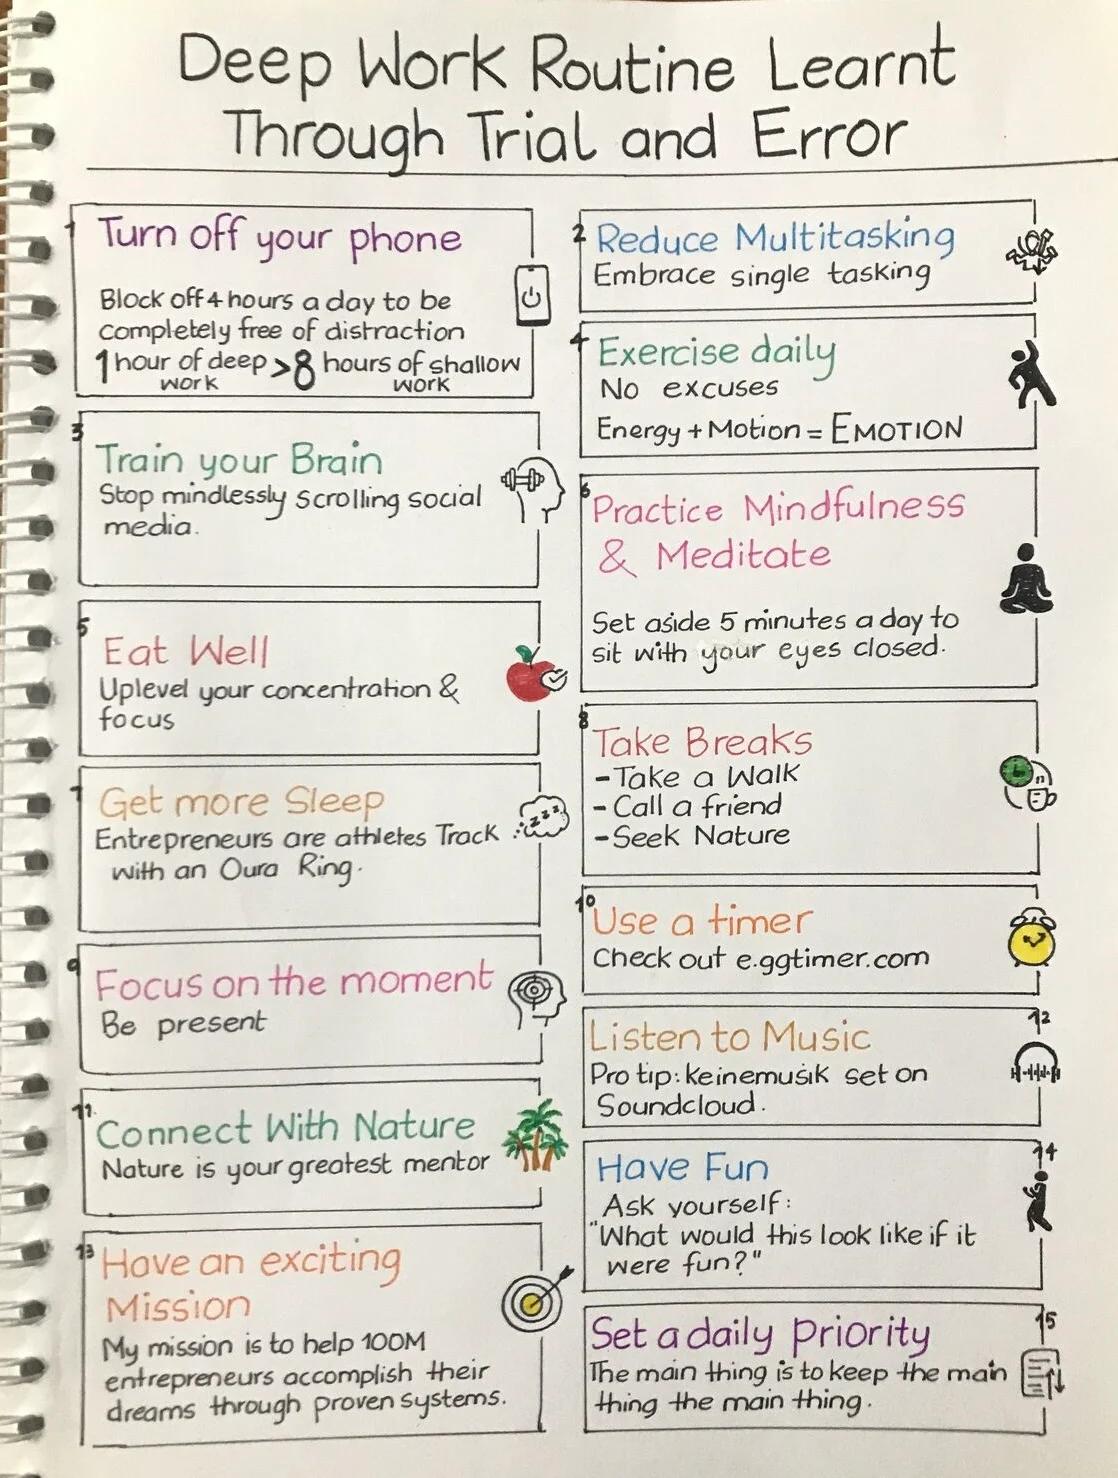 Deep Work Routine Learnt
Through Trial and Error
1
Turn off your phone
Block off 4 hours a day to be
completely free of distraction
1 hour of deep > 8 hours of shallow
work work
2
Reduce Multitasking
Embrace single tasking
3
Train your Brain
Stop mindlessly scrolling social
media.
4
Exercise daily
No excuses
Energy + Motion = EMOTION
5
Eat Well
Uplevel your concentration &
focus
6
Practice Mindfulness
& Meditate
Set aside 5 minutes a day to
sit with your eyes closed.
7
Get more Sleep
Entrepreneurs are athletes Track
with an Oura Ring.
zzz
8
Take Breaks
-Take a Walk
-Call a friend
-Seek Nature
9
Focus on the moment
Be present
10
Use a timer
Check out e.ggtimer.com
11.
Connect With Nature
Nature is your greatest mentor
12
Listen to Music
Pro tip: keinemusik set on
Soundcloud.
13
Have an exciting
Mission
My mission is to help 100M
entrepreneurs accomplish their
dreams through proven systems.
14
Have Fun
Ask yourself:
"What would this look like if it
were fun?"
15
Set a daily priority
The main thing is to keep the main
thing the main thing.